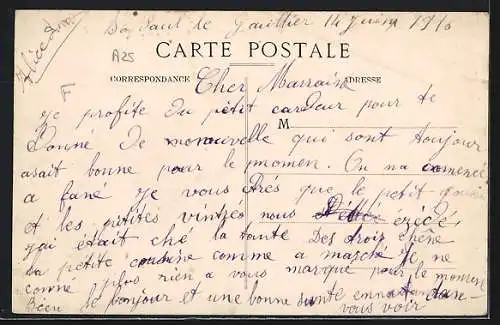 Paul le Gaultier 14 Juin 1916
Alice
A25
CARTE POSTALE
CORRESPONDANCE
ADRESSE
Cher Marraine
F
Je profite du petit cardeur pour te
M
Donné De menouvelle qui sont toujour
asait bonne pour le momen. On na comencé
a fané Je vous que le petit
et les petites nous
qai était ché la tante Des trois chêne
la petite cousine comme a masché Je ne
comé plus rien a vous marque pour le momen
Bien le bonjour et une bonne sante ennatendan
vous voir